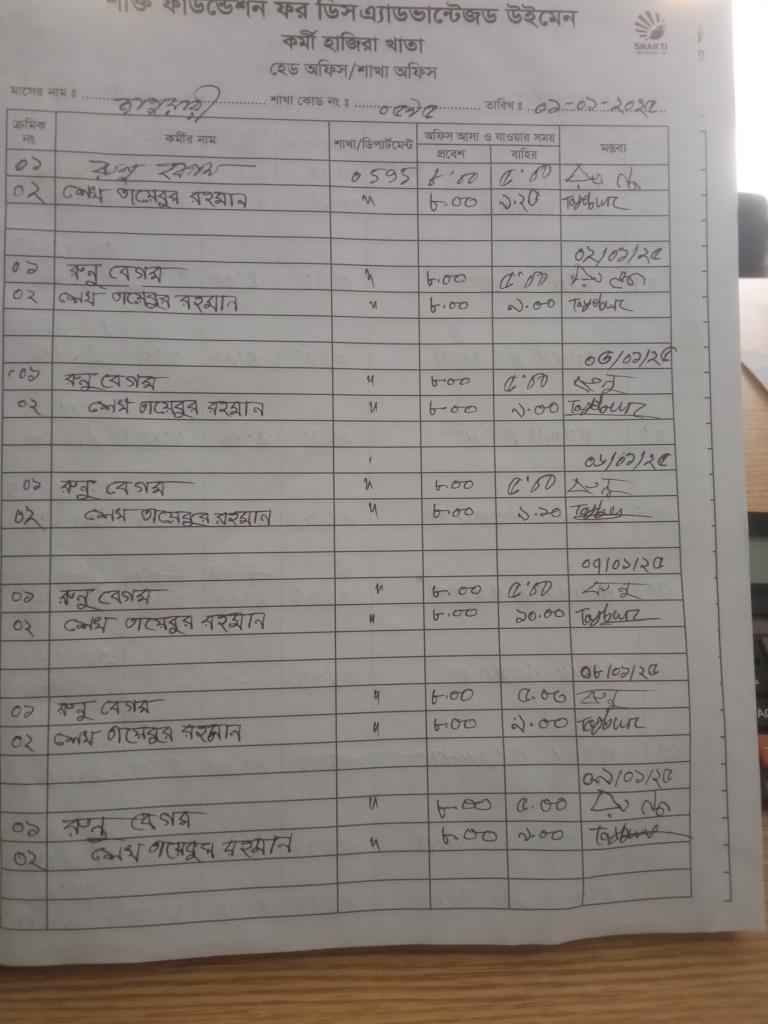 শক্তি ফাউন্ডেশন ফর ডিসএ্যাডভান্টেজড উইমেন
কর্মী হাজিরা খাতা
হেড অফিস/শাখা অফিস
SHAKTI
মাসের নাম ঃ জানুয়ারী শাখা কোড নং ঃ ০৫৯৫ তারিখ ঃ ০১-০১-২০২৫
ক্রমিক নং কর্মীর নাম শাখা/ডিপার্টমেন্ট অফিস আসা ও যাওয়ার সময় মন্তব্য
প্রবেশ বাহির
০১ রুনু বেগম 0595 ৮.০০ ৫.০০ রুনু
০২ শেখ তায়েবুর রহমান " ৮.০০ ৯.২০ Tayebur
০২/০১/২৫
০১ রুনু বেগম " ৮.০০ ৫.০০ রুনু
০২ শেখ তায়েবুর রহমান " ৮.০০ ৯.০০ Tayebur
০৫/০১/২৫
০১ রুনু বেগম " ৮.০০ ৫.০০ রুনু
০২ শেখ তায়েবুর রহমান " ৮.০০ ৯.০০ Tayebur
০৬/০১/২৫
০১ রুনু বেগম " ৮.০০ ৫.০০ রুনু
০২ শেখ তায়েবুর রহমান " ৮.০০ ৯.২০ Tayebur
০৭/০১/২৫
০১ রুনু বেগম " ৮.০০ ৫.০০ রুনু
০২ শেখ তায়েবুর রহমান " ৮.০০ ১০.০০ Tayebur
০৮/০১/২৫
০১ রুনু বেগম " ৮.০০ ৫.০০ রুনু
০২ শেখ তায়েবুর রহমান " ৮.০০ ৯.০০ Tayebur
০৯/০১/২৫
০১ রুনু বেগম " ৮.০০ ৫.০০ রুনু
০২ শেখ তায়েবুর রহমান " ৮.০০ ৯.০০ Tayebur